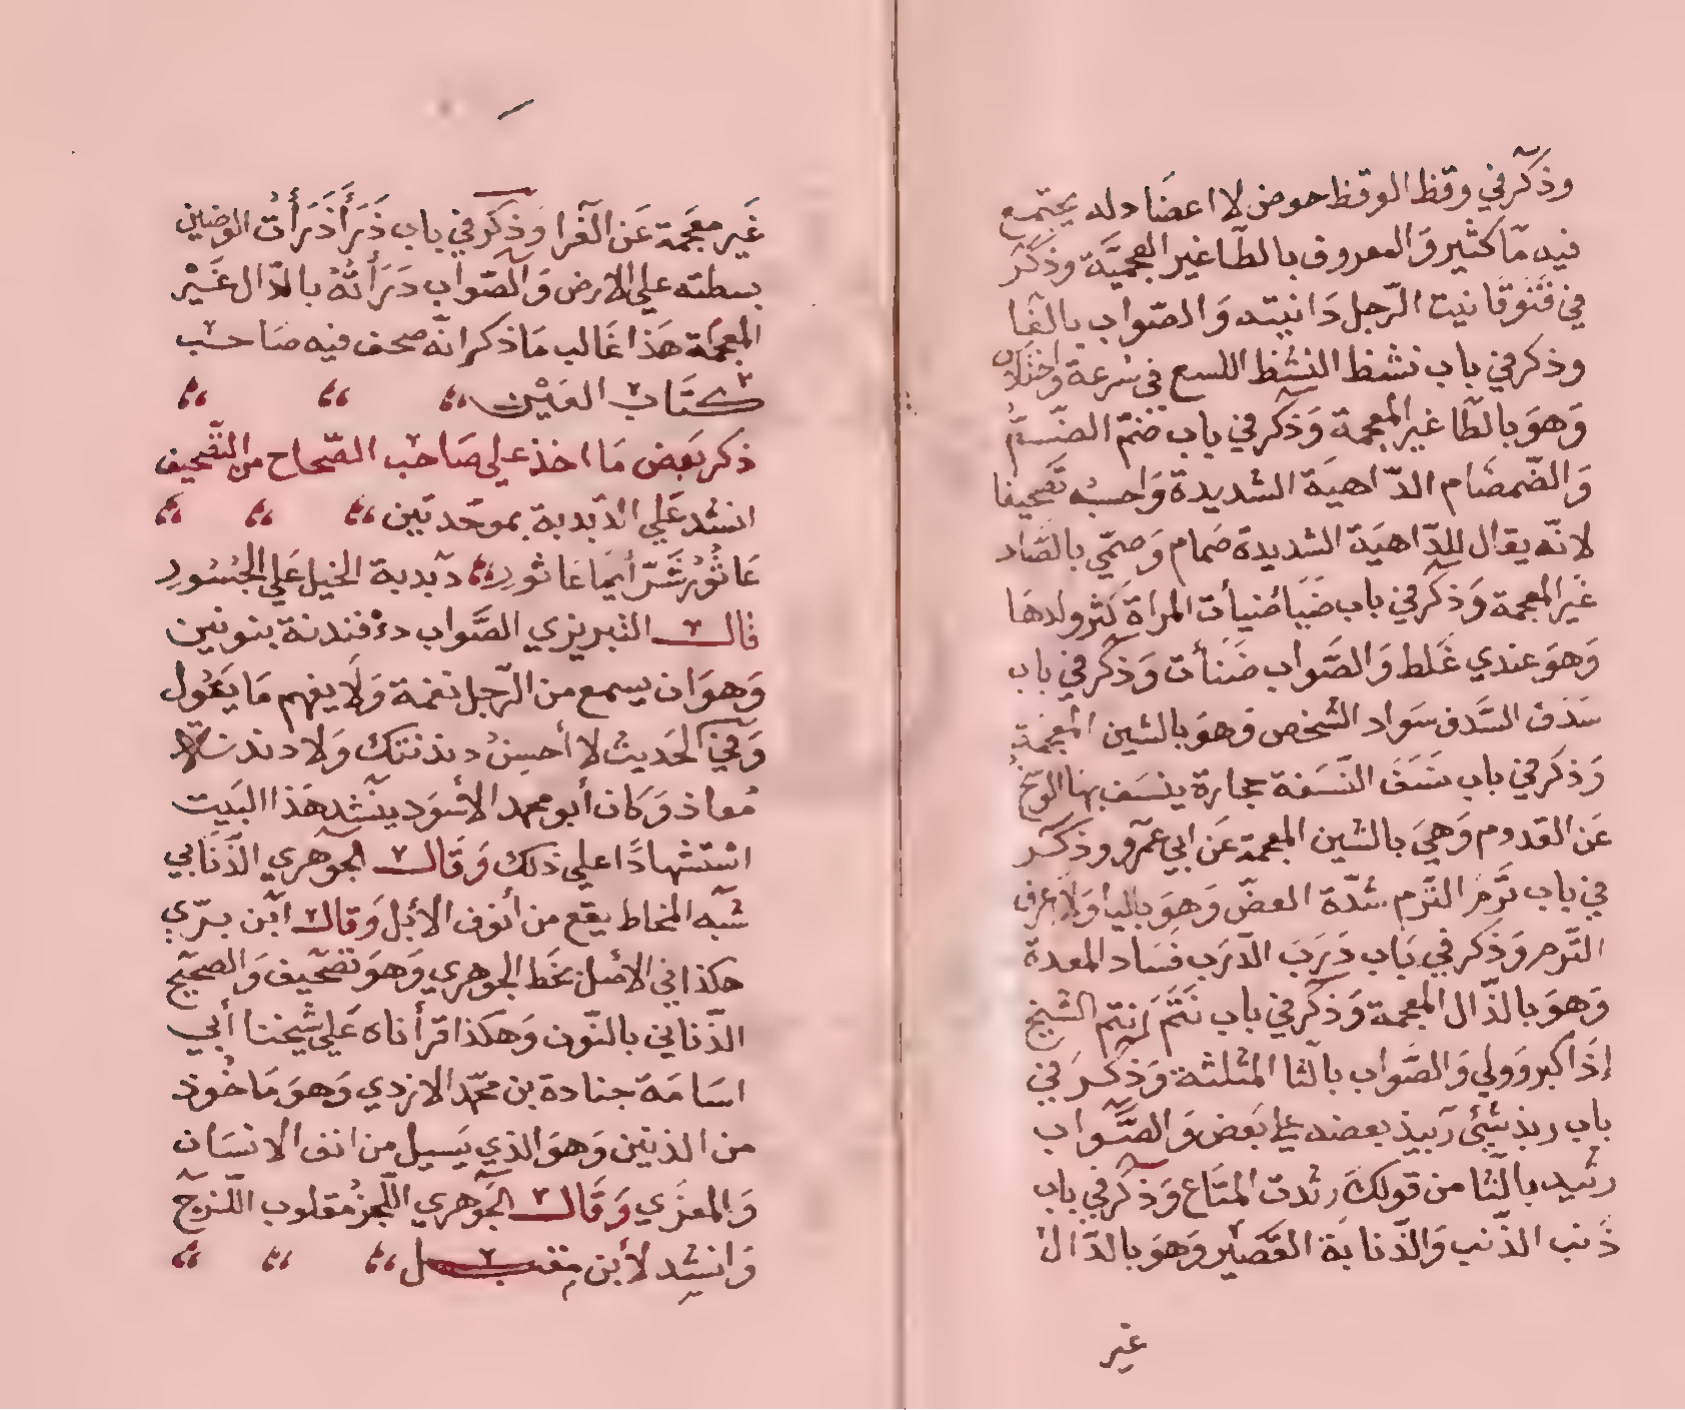 وذكر في وقظ الوقظ حوض لا اعضاد له يجتمع
فيه مآ كثير وَالمعروف بالطآ غير المعجميَّة وذكَرَ
في قَنوقانيت الرّجل دَانيته وَالصّواب بالفآ
وذكر في باب نشظ النشظ اللسع في سُرعة واختلاس
وَهوَ بالطّا غير المعجمة وَذكر في باب ضمّ الضّمّ
وَالضّمضَام الدّاهيَة الشديدة وَاحسبُه تصحيفا
لانّه يقال للدّاهيَة الشديدة صَمام وَصمّي بالصَّاد
غَير المعجمة وَذكر في باب ضَبَا ضَبأت المراة كَثر ولدهَا
وَهوَ عندي غَلط وَالصَّواب ضَنَأت وَذكر في باب
سَدف السَّدف سَواد الشخص وَهوَ بالشين المعجمة
وَذكَر في باب نسَفَ النَّسَفة حجارة ينسَف بهَا الوسخ
عَن القدوم وَهيَ بالشين المعجمة عَن ابي عَمرو وذكَر
في باب تَرم التَّرم شدّة العضّ وَهوَ باليا وَلا اعرف
التَّرم وَذكر في بَاب دَرَبَ الدّرَب فسَاد المعدة
وَهوَ بالذّال المعجمة وَذكر في باب نَتَمَ انتم الشيخ
إذَا كبر وَولي وَالصَّواب بالثا المثلثة وَذكَر في
باب ربذ شئى رَبيذ بعضه على بَعض وَالصَّواب
رثيد بالثَّا من قولكَ رثدت المتَاع وَذكر في باب
ذَنب الذّنب وَالذّنابَة القَصيْر وَهوَ بالدّال
غير
غَير معجَمة عَن الفَرا وَذكَر في باب ذَرَأَ ذَرَأتُ الوضين
بسطته علي الارض وَالصّواب دَرَأتُهُ بالدّال غَيْر
المعجمَة هَذا غَالب مَا ذكر انّه صحف فيه صَاحب
كتَاب العَيْن
ذكر بَعض مَا اخذ علي صَاحب الصّحاح من التَّصحيف
انشد عَلي الدّبدبة بموحّدتَين
عَاثُورُ شَرّ أيمَا عَاثورِ دَبدبة الخيل عَلي الجسُورِ
قال التبريزي الصَّواب دَنْدنة بنونين
وَهوَ ان يسمع من الرّجل نغمة وَلَا يفهم مَا يَقُول
وَفي الحَديث لا أحسِنُ دندنتك وَلا دندنة
مُعاذ وَكان أبو محمد الاسْوَد ينشد هَذا البَيت
اسْتشهادًا علي ذلك وَقَال الجوهري الذُّنَابي
شبْه المخاط يقع من أنوف الأبل وَقال ابْن برّي
هكذا في الاصْل بخط الجوهري وَهوَ تصحَيف وَالصحيْح
الذّناني بالنّون وَهكذا قرأناه عَلي شيخنا أبي
اسَامَة جنادة بن محمّد الازدي وَهوَ مَاخُوذ
من الذنين وَهوَ الذي يَسيل من انف الانسَان
وَالمعزَي وَقَال الجَوهري اللّجز مُقلوب اللّزج
وَانشد لأبن مقبل